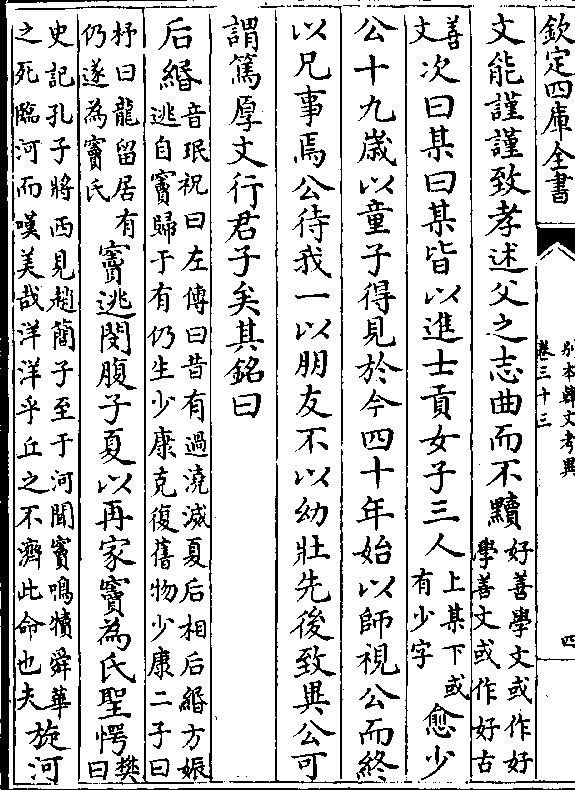 欽定四庫全書
別本韓文考異
卷三十三
四
文能謹謹致孝述父之志曲而不黷好善學文或作好學善文或作好古
善文次曰某曰某皆以進士貢女子三人上某下或有少字愈少
公十九歲以童子得見於今四十年始以師視公而終
以兄事焉公待我一以朋友不以幼壯先後致異公可
謂篤厚文行君子矣其銘曰
后緡音珉祝曰左傳曰昔有過澆滅夏后相后緡方娠逃自竇歸于有仍生少康克復舊物少康二子曰
杼曰龍留居有仍遂為竇氏竇逃閔腹子夏以再家竇為氏聖愕樊曰
史記孔子將西見趙簡子至于河聞竇鳴犢舜華之死臨河而嘆美哉洋洋乎丘之不濟此命也夫旋河